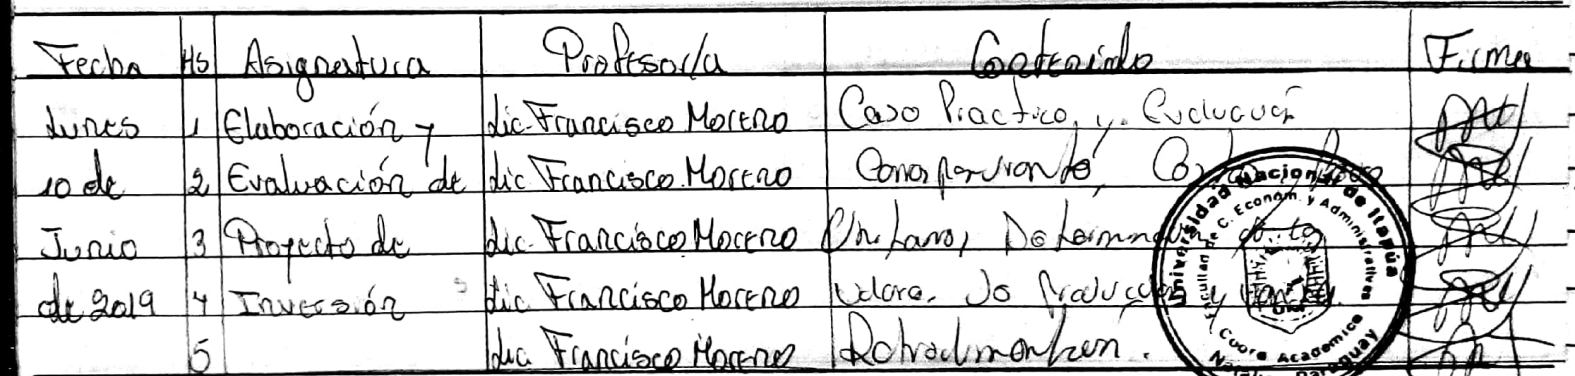 Fecha Hs Asignatura Profesor/a Contenido Firma
Lunes 1 Elaboración y Lic. Francisco Moreno Caso Practico, y Evaluación
10 de 2 Evaluación de Lic Francisco Moreno
Junio 3 Proyecto de Lic. Francisco Moreno Unitario,
de 2019 4 Inversión Lic Francisco Moreno de Producción y
5 Lic Francisco Moreno Retroalimentacion.
Universidad Nacional de Itapúa
de C. Econom. y Administrativas
Academica
Paraguay